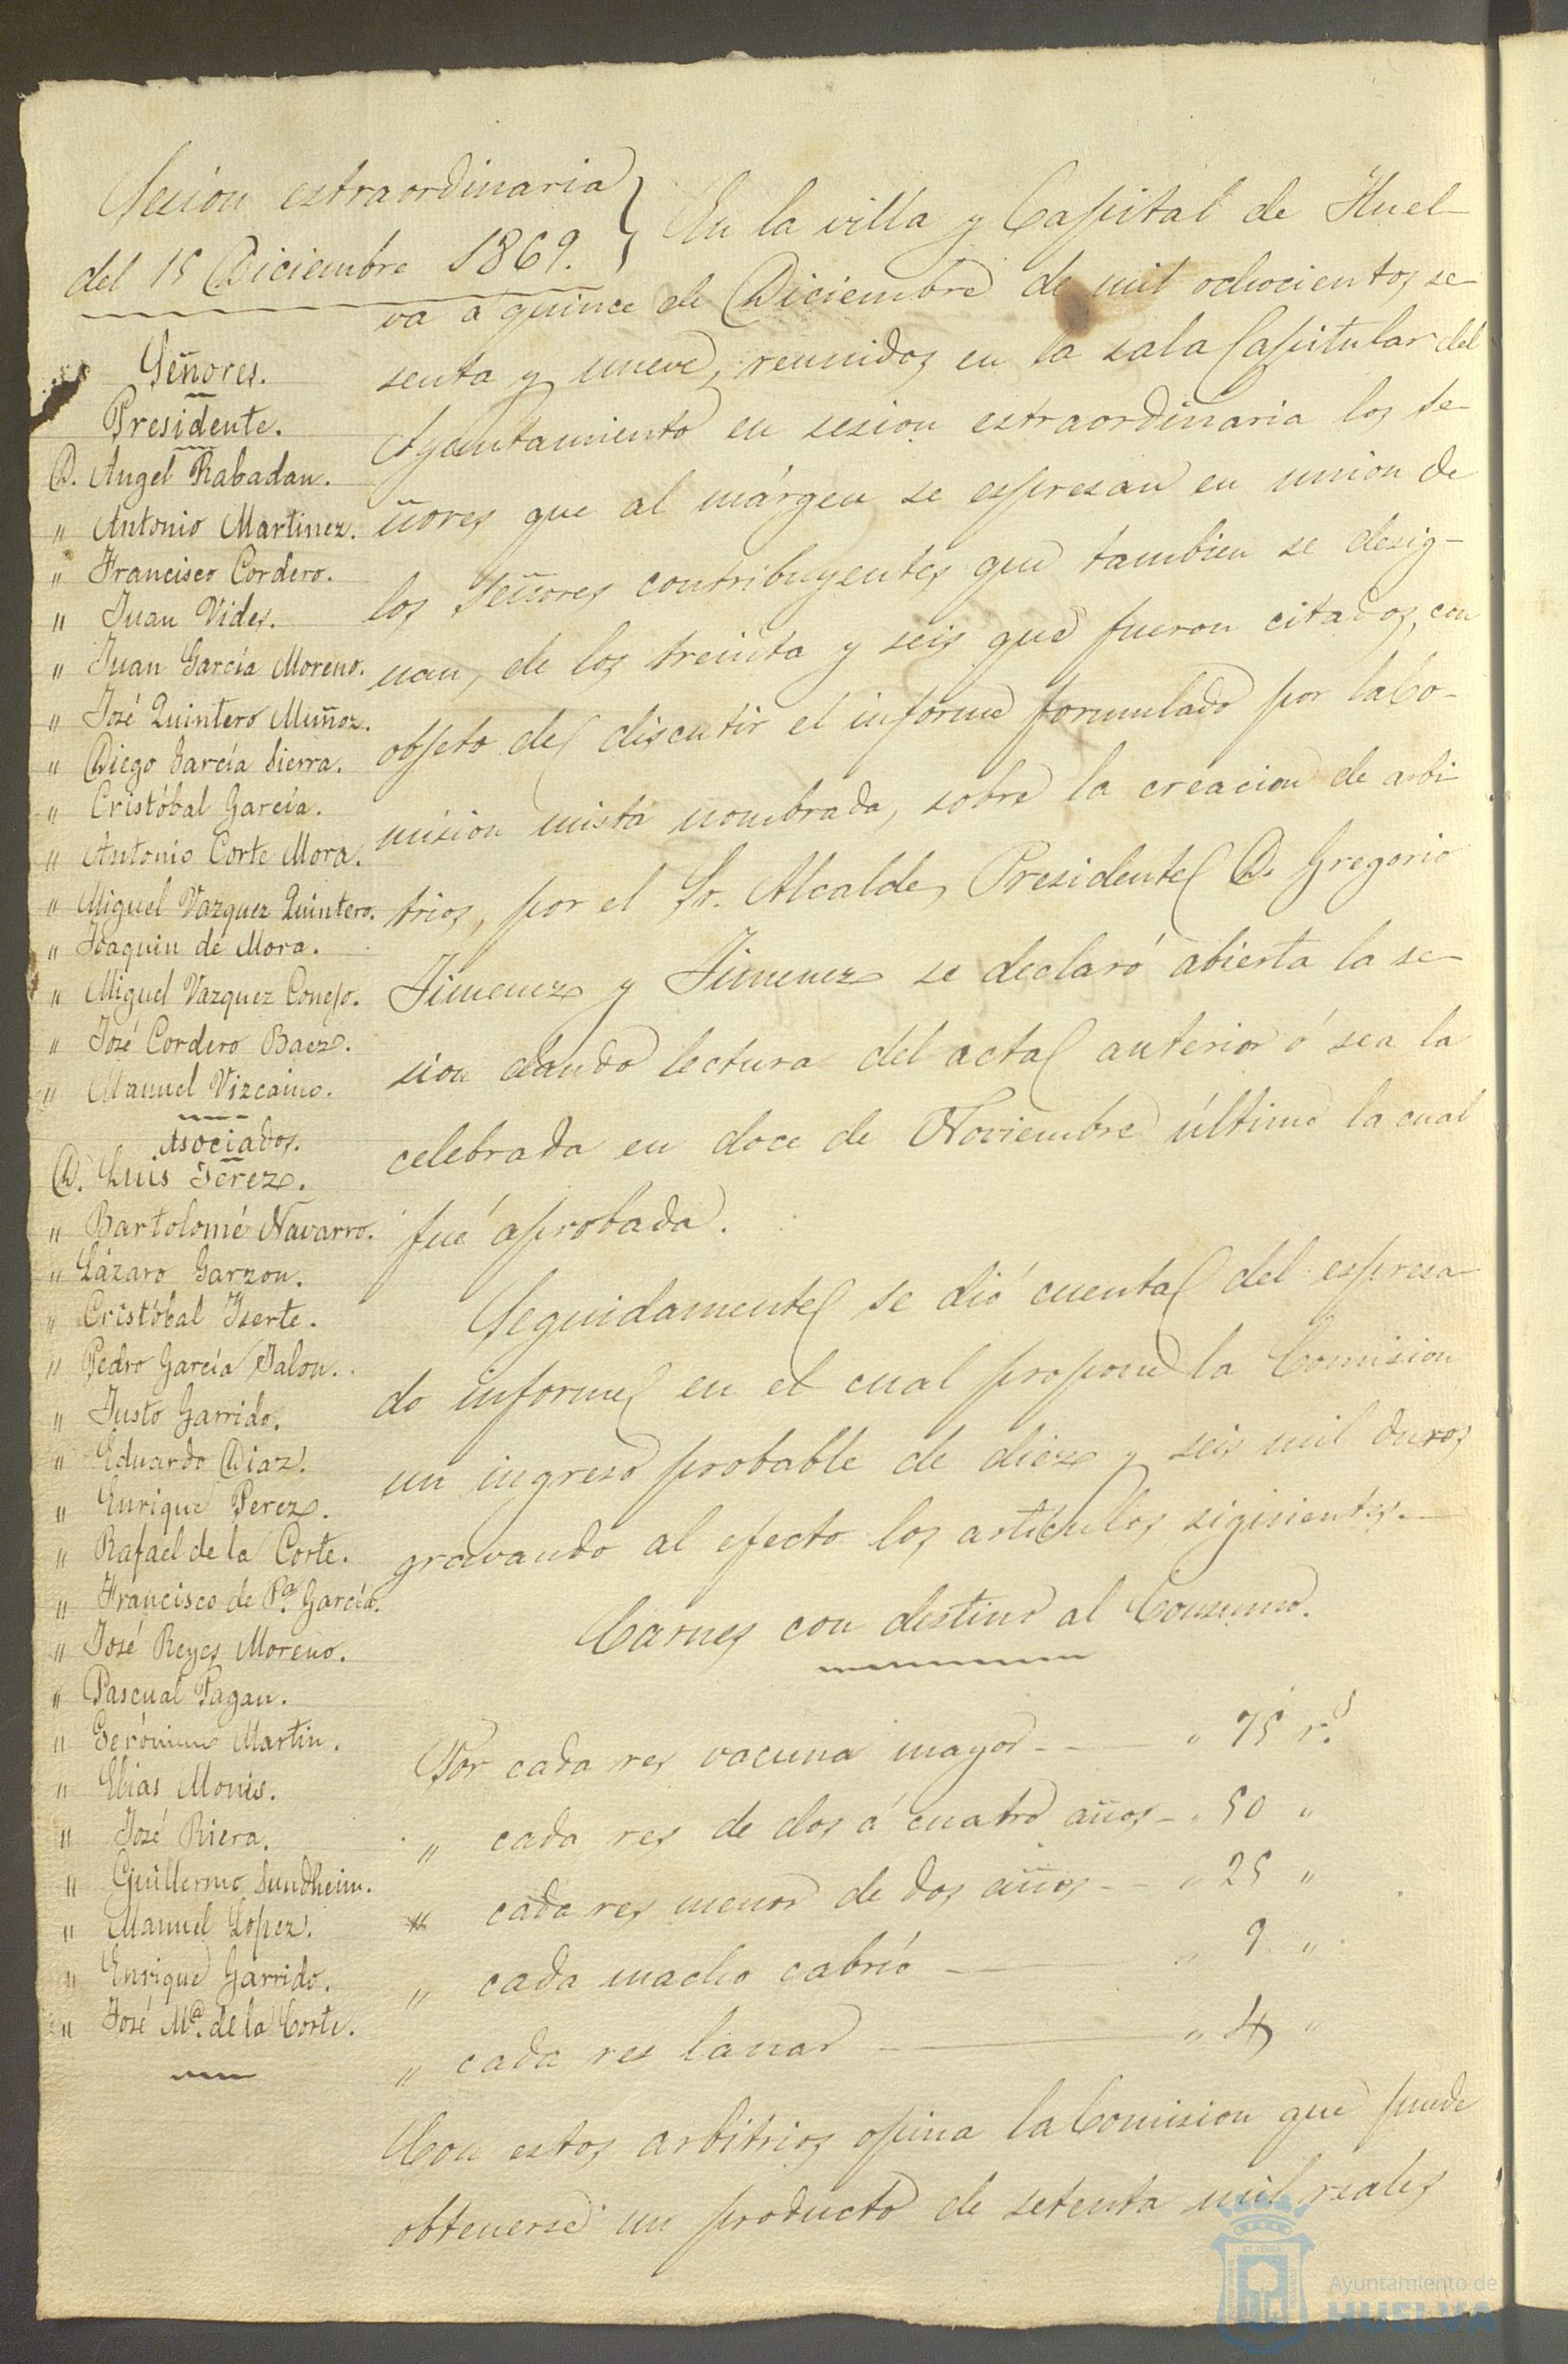 Sesion estraordinaria
del 15 Diciembre 1869.
Señores.
Presidente.
D. Angel Rabadan.
" Antonio Martinez.
" Francisco Cordero.
" Juan Vides.
" Juan García Moreno.
" José Quintero Muñoz.
" Diego García Sierra.
" Cristóbal García.
" Antonio Corte Mora.
" Miguel Vazquez Quintero.
" Joaquin de Mora.
" Miguel Vazquez Conejo.
" José Cordero Baez.
" Manuel Vizcaino.
Asociados.
D. Luis Jerez.
" Bartolomé Navarro.
" Lázaro Garzon.
" Cristóbal Iserte.
" Pedro García Jalon.
" Justo Garrido.
" Eduardo Diaz.
" Enrique Perez.
" Rafael de la Corte.
" Francisco de Pª. García.
" José Reyes Moreno.
" Pascual Pagan.
" Gerónimo Martin.
" Elias Monis.
" José Riera.
" Guillermo Sundheim.
" Manuel Lopez.
" Enrique Garrido.
" José Mª. de la Corte.
En la villa y Capital de Huel-
va á quince de Diciembre de mil ochocientos se-
senta y nueve, reunidos en la sala Capitular del
Ayuntamiento en sesion estraordinaria los Se-
ñores que al márgen se espresan en union de
los Señores contribuyentes que tambien se desig-
nan, de los treinta y seis que fueron citados, con
objeto de discutir el informe formulado por la Co-
mision mista nombrada, sobre la creacion de arbi-
trios, por el Sr. Alcalde, Presidente D. Gregorio
Jimenez y Jimenez se declaró abierta la se-
sion dando lectura del acta anterior ó sea la
celebrada en doce de Noviembre último la cual
fué aprobada.
Seguidamente se dió cuenta del espresa-
do informe en el cual propone la Comision
un ingreso probable de diez y seis mil duros
gravando al efecto los artículos siguientes.
Carnes con destino al Consumo.
Por cada res vacuna mayor " 75 r.s
" cada res de dos á cuatro años " 50 "
" cada res menor de dos años " 25 "
" cada macho cabrío " 9 "
" cada res lanar " 4 "
Con estos arbitrios opina la Comision que puede
obtenerse un producto de setenta mil reales
Ayuntamiento de
HUELVA